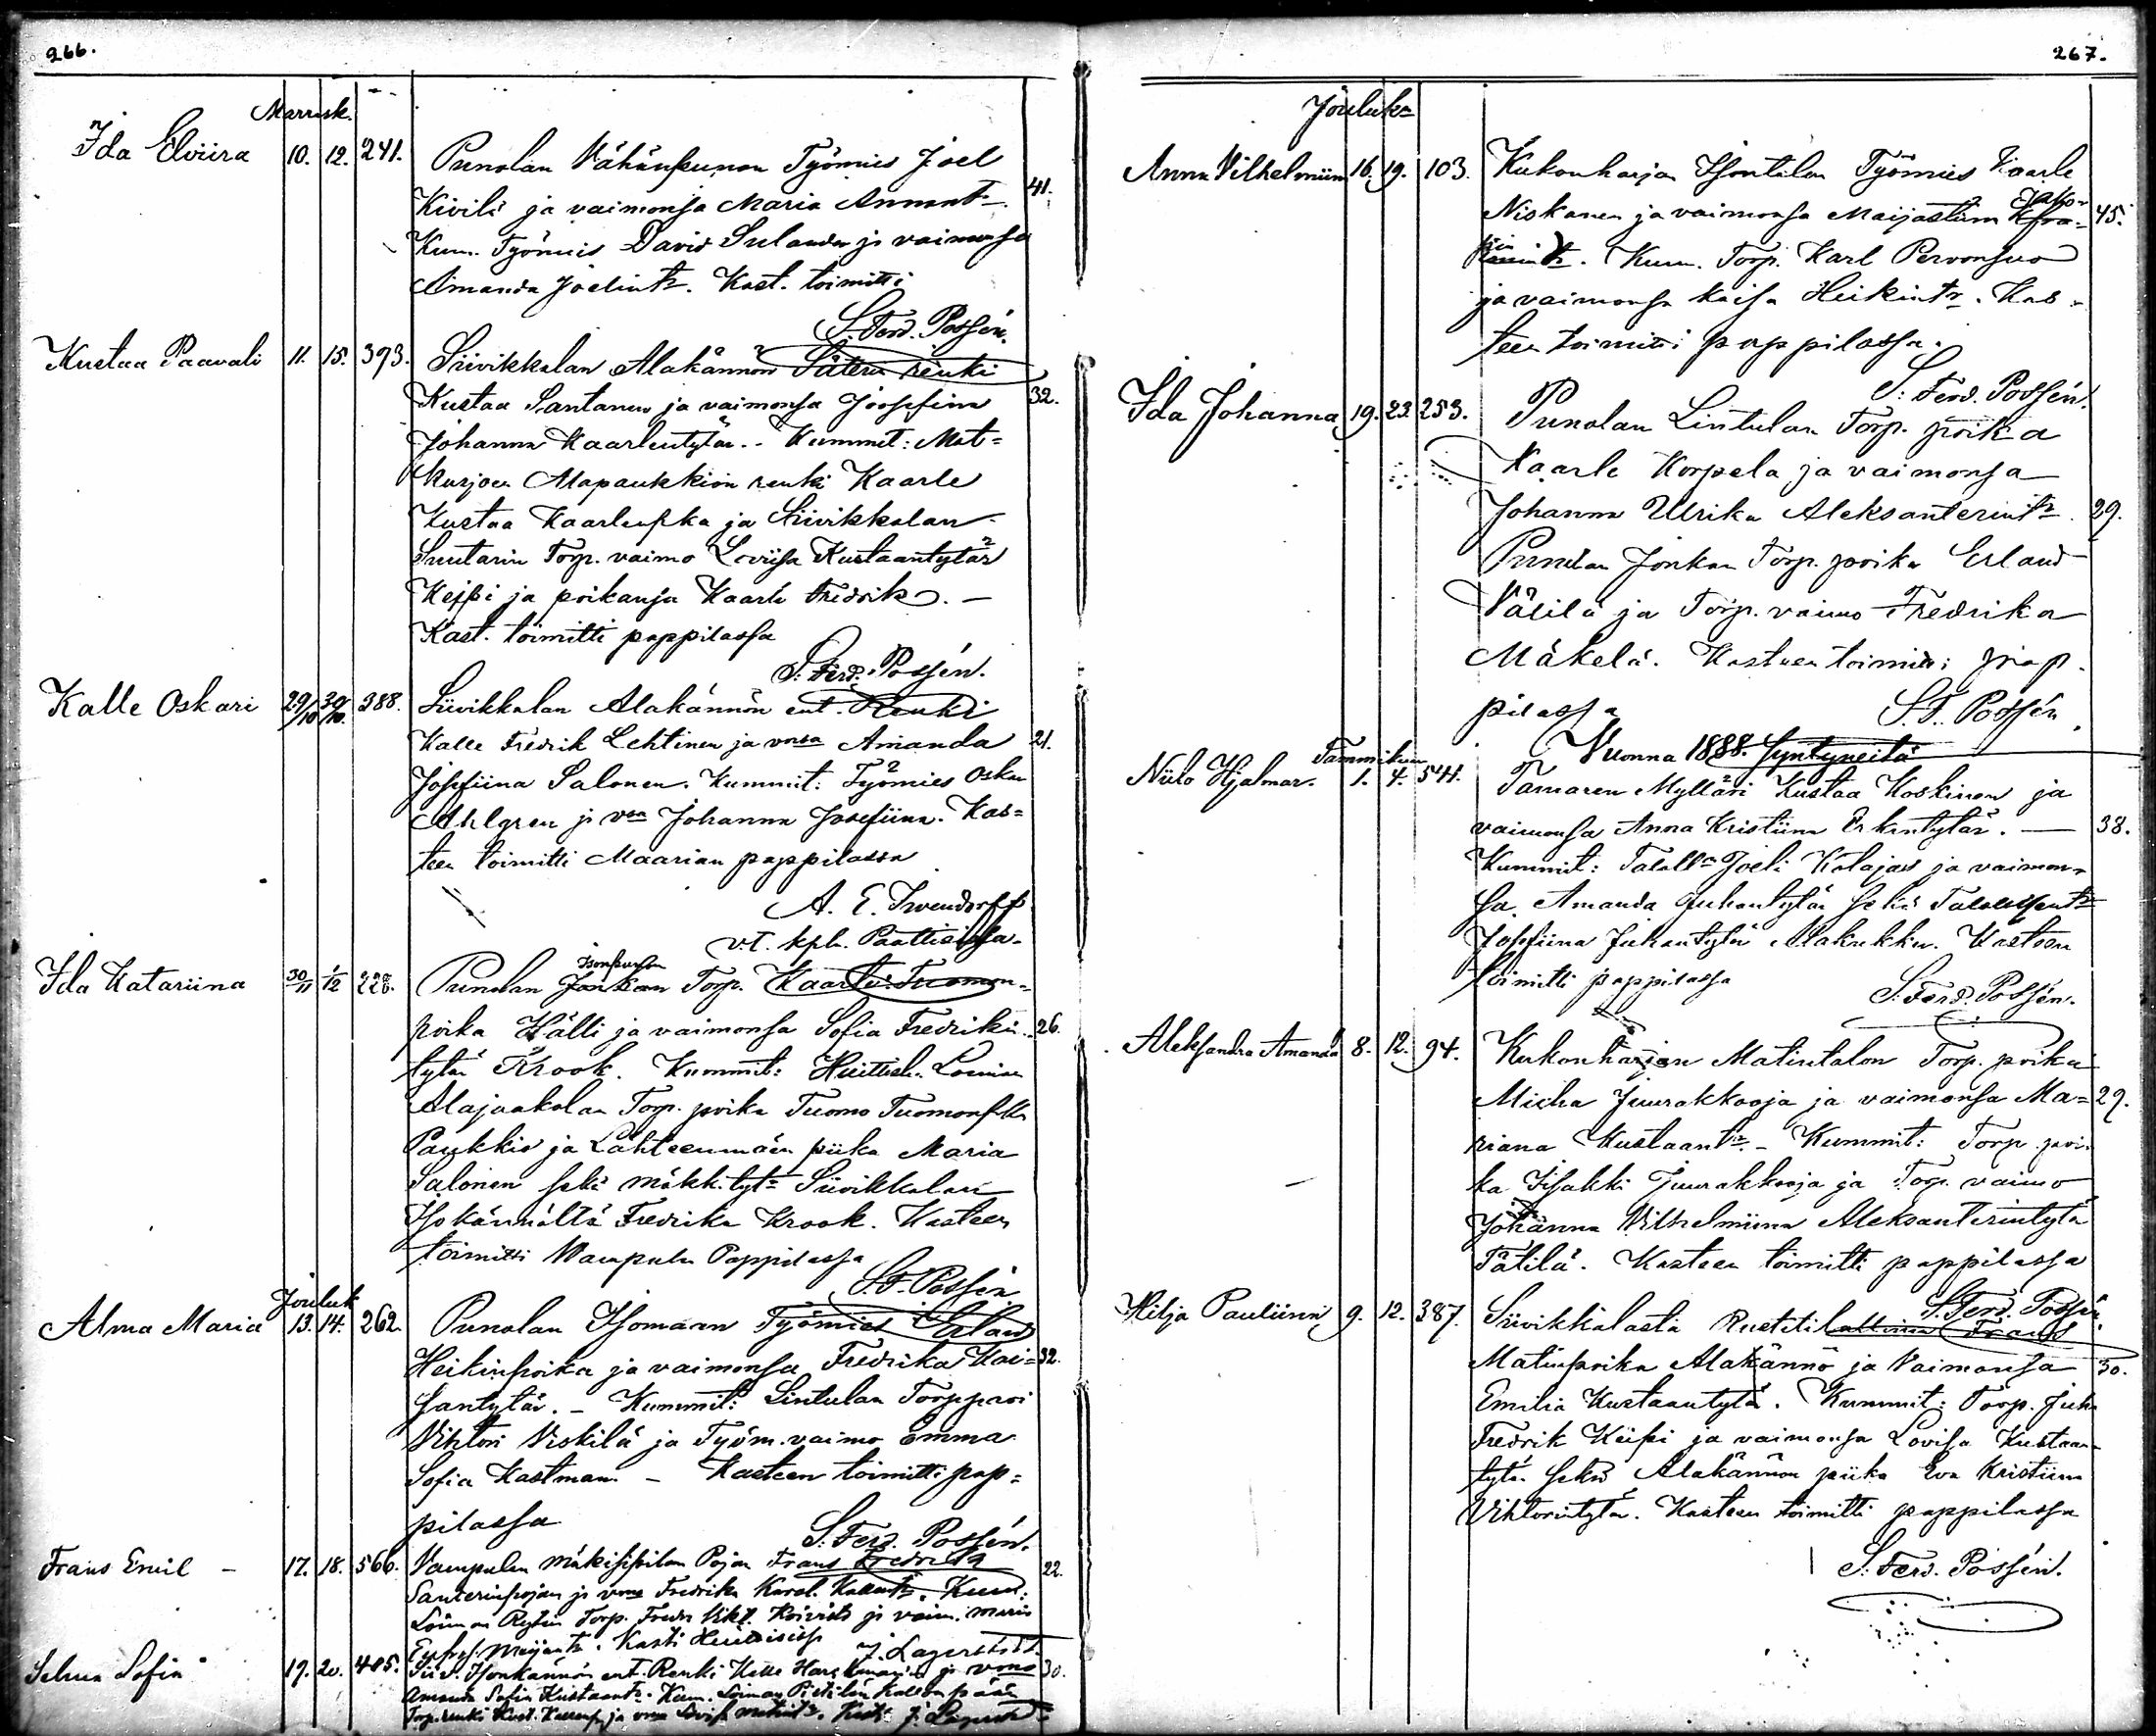 266.
Marrask.
Ida Elviira 10. 12. 241. Punolan Vähänpunon Työmies Joel
Kivilä ja vaimonsa Maria Annant= 41.
Kum. Työmies David Sulander ja vaimonsa
Amanda Joelint=. Kast. toimitti
S. Ferd. Possén.
Kustaa Paavali 11. 15. 393. Siivikkalan Alakännön Sätern renki
Kustaa Santanen ja vaimonsa Joosefina 32.
Johanna Kaarlentytär. - Kummit: Mat=
kurjoen Alapaukkion renki Kaarle
Kustaa Kaarlenpka ja Siivikkalan
Suutarin Torp. vaimo Loviisa Kustaantytär
Keipi ja poikansa Kaarle Fredrik. -
Kast. toimitti pappilassa
S. Ferd. Possén.
Kalle Oskari 29/10 30/10. 388. Siivikkalan Alakännön ent. Renki
Kalle Fredrik Lehtinen ja vnsa Amanda 21.
Josefiina Salonen. Kummit: Työmies Oskar
Ahlgren ja vsa Johanna Josefiina. Kas=
teen toimitti Maarian pappilassa
A. E.
v.t. kpl. Paattisissa.
Ida Katariina 30/11 1/12 228. Punolan Isonpunon Torp. Kaarle Tuomon=
poika Hälli ja vaimonsa Sofia Fredrikin 26.
tytär Krook. Kummit: Huittisten Loiman
Alajaakolan Torp. poika Tuomo Tuomonpka
Paukkio ja Lähteenmäen piika Maria
Salonen sekä mäkk. tyt= Siivikkalan
Isokännöltä Fredrika Krook. Kasteen
toimitti Vampulan Pappilassa
S. F. Possén.
Jouluk
Alma Maria 13. 14. 262. Punolan Isomaan Työmies Erland
Heikinpoika ja vaimonsa Fredrika Kai= 32.
santytär. - Kummit: Lintulan Torppari
Vihtori Viskilä ja Työm. vaimo Emma
Sofia Kastman. - Kasteen toimitti pap=
pilassa
S. Ferd. Possén.
Frans Emil - 17. 18. 566. Vampulan mäkitupilan Pojan Frans Fredrik 22.
Santerinpojan ja vmo Fredrika Karol. Kallent=. Kum:
Loiman Torp. Koivisto ja vaim. Maria
Kasti Huittisissa J. Lagerstedt.
Selma Sofia 19. 20. 405. Siiv. Isonkännön ent. Renki Kalle ja vmo 30.
Amanda Sofia Kustaant=. Kum. Loiman Kallon pään
Torp. renki Kust. ja vmo Kasti J. Lagerst=
267.
Jouluk=
Anna Vilhelmiin 16. 19. 103. Kukonharjan Isontalon Työmies Kaarle
Niskanen ja vaimonsa Maijastiina Jako= 45.
pint=. Kum. Torp. Karl Pervonsuo
ja vaimonsa Kaisa Heikint=. Kas=
teen toimitti pappilassa.
S. Ferd. Possén.
Ida Johanna 19. 22. 253. Punolan Lintulan Torp. poika
Kaarle Korpela ja vaimonsa
Johanna Ulrika Aleksanterint=. 29.
Punolan Jonkan Torp. poika Erland
Välilä ja Torp. vaimo Fredrika
Mäkelä. Kasteen toimitti pap=
pilassa S. F. Possén
Vuonna 1888. Syntyneitä
Tammikuu
Niilo Hjalmar. 1. 4. 541. Tamaren Mylläri Kustaa Koskinen ja
vaimonsa Anna Kristiina Erkintytär. - 38.
Kummit: Talall= Joeli Katajas ja vaimon=
sa Amanda Juhantytär sekä
Josefiina Juhantytär Alakukku. Kasteen
toimitti pappilassa
S. Ferd. Possén.
Aleksandra Amanda 8. 12. 94. Kukonharjan Matintalon Torp. poika
Micha Juurakkooja ja vaimonsa Ma= 29.
riana Kustaant=. - Kummit: Torp. poi=
ka Iisakki Juurakkooja ja Torp. vaimo
Johanna Vilhelmiina Aleksanterintytä
Tätilä. Kasteen toimitti pappilassa
S. Ferd. Possén.
Hilja Pauliina 9. 12. 387. Siivikkalasta Rustitilallinen Frans
Matinpoika Alakännö ja Vaimonsa 30.
Emilia Kustaantytä. Kummit: Torp. Juha
Fredrik Keipi ja vaimonsa Lovisa Kustaan=
tytä sekä Alakännön piika Eva Kristiina
Vihtorintytä. Kasteen toimitti pappilassa
S. Ferd. Possén.